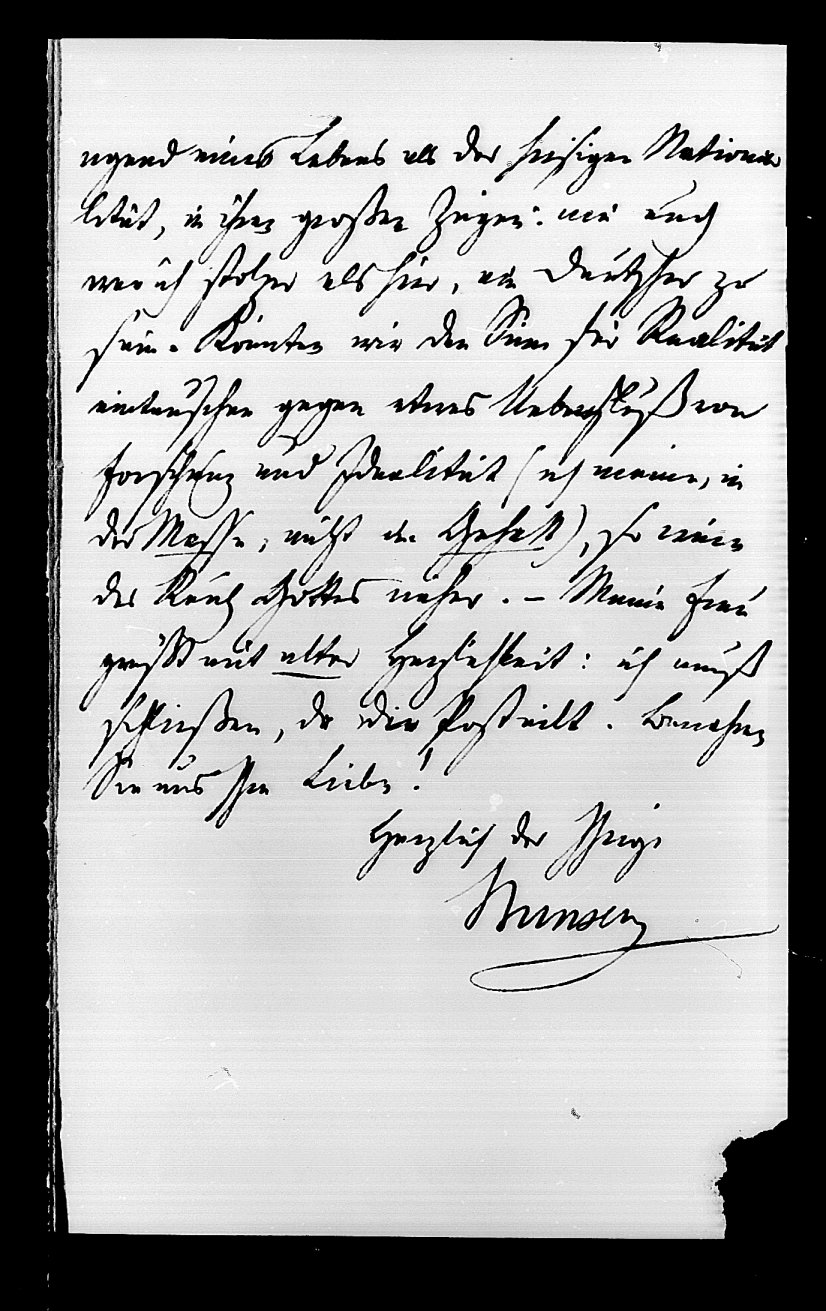 irgend eines Lebens als der hiesigen Nationa-
lität, in ihren großen Zügen: nie auch
war ich stolzer als hier, ein Deutscher zu
sein. Könnten wir den Sinn für Realität
eintauschen gegen etwas Ueberfluß von
Forschung und Idealität (ich meine, in
der Masse, nicht im Gehalt), so wäre
das Reich Gottes näher. – Meine Frau
grüßt mit alter Herzlichkeit: ich muß
schließen, da die Post eilt. Bewahren
Sie uns Ihre Liebe!
Herzlich der Ihrige
Bunsen